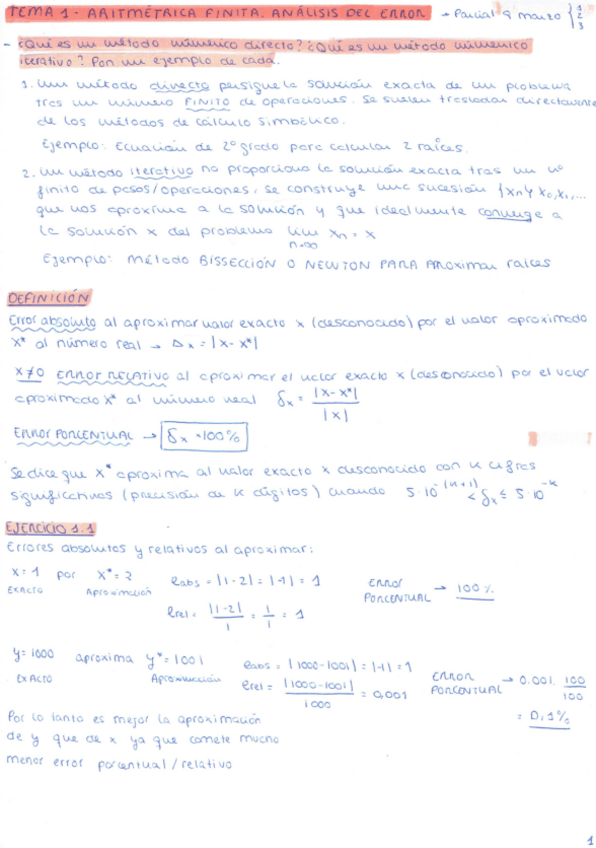 TEMA 1 - ARITMÉTRICA FINITA. ANÁLISIS DEL ERROR → Parcial 9 marzo { 1 2 3
- ¿Qué es un método númerico directo? ¿Qué es un método númerico
iterativo? Pon un ejemplo de cada.
1. Un método directo persigue la solución exacta de un problema
tras un número FINITO de operaciones. Se suelen trasladar directamente
de los métodos de cálculo simbólico.
Ejemplo: Ecuación de 2º grado para calcular 2 raíces.
2. Un método iterativo no proporciona la solución exacta tras un nº
finito de pasos/operaciones, se construye una sucesión {xn} x0, x1, ...
que nos aproxima a la solución y que idealmente converge a
la solución x del problema lim xn = x
n→∞
Ejemplo: Método BISSECCIÓN O NEWTON PARA Aproximar raíces
DEFINICIÓN
Error absoluto al aproximar valor exacto x (desconocido) por el valor aproximado
x* al número real → Δx = |x - x*|
x≠0 ERROR RELATIVO al aproximar el valor exacto x (desconocido) por el valor
aproximado x* al número real δx = |x - x*| / |x|
ERROR PORCENTUAL → δx · 100%
Se dice que x* aproxima al valor exacto x desconocido con k cifras
significativas (precisión de k dígitos) cuando 5·10^-(k+1) < δx ≤ 5·10^-k
EJERCICIO 1.1
Errores absolutos y relativos al aproximar:
x = 1 por x* = 2 eabs = |1-2| = |-1| = 1 ERROR PORCENTUAL → 100%
EXACTO Aproximación
erel = |1-2| / 1 = 1/1 = 1
y = 1000 aproxima y* = 1001 eabs = |1000-1001| = |-1| = 1
EXACTO Aproximación erel = |1000-1001| / 1000 = 0,001 ERROR PORCENTUAL → 0.001 · 100/100
= 0,1%
Por lo tanto es mejor la aproximación
de y que de x ya que comete mucho
menor error porcentual/relativo
1